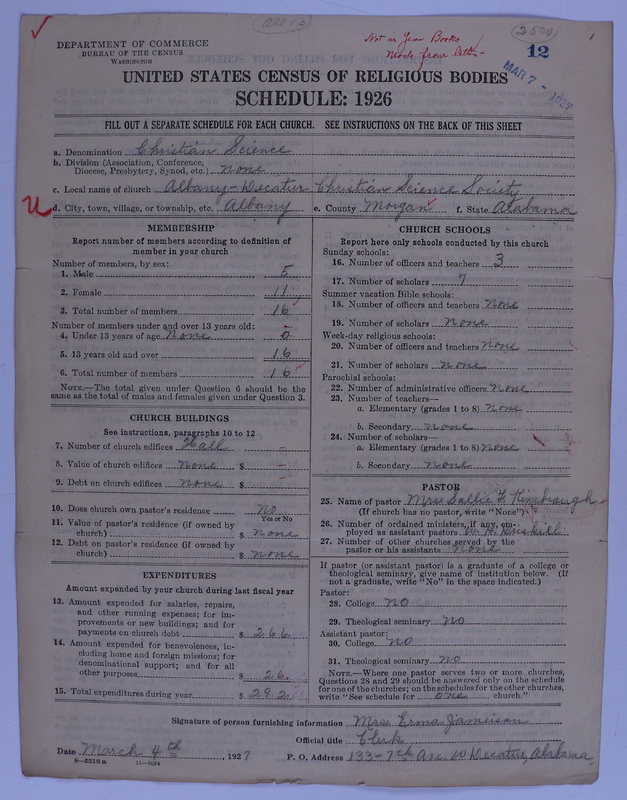 (all 12)
2500
DEPARTMENT OF COMMERCE
BUREAU OF THE CENSUS
WASHINGTON
Not in Year Books
Made from
12
MAR 7 - 1927
UNITED STATES CENSUS OF RELIGIOUS BODIES
SCHEDULE: 1926
FILL OUT A SEPARATE SCHEDULE FOR EACH CHURCH. SEE INSTRUCTIONS ON THE BACK OF THIS SHEET
a. Denomination Christian Science
b. Division (Association, Conference,
Diocese, Presbytery, Synod, etc.) none
c. Local name of church Albany-Decatur Christian Science Society
d. City, town, village, or township, etc. Albany e. County Morgan f. State Alabama
MEMBERSHIP
Report number of members according to definition of
member in your church
Number of members, by sex:
1. Male 5
2. Female 11
3. Total number of members 16
Number of members under and over 13 years old:
4. Under 13 years of age None 0
5. 13 years old and over 16
6. Total number of members 16
NOTE.—The total given under Question 6 should be
the same as the total of males and females given under Question 3.
CHURCH BUILDINGS
See instructions, paragraphs 10 to 12
7. Number of church edifices Hall –
8. Value of church edifices None $ –
9. Debt on church edifices none $ –
10. Does church own pastor's residence no
Yes or No
11. Value of pastor's residence (if owned by
church) $ none
12. Debt on pastor's residence (if owned by
church) $ none
EXPENDITURES
Amount expended by your church during last fiscal year
13. Amount expended for salaries, repairs,
and other running expenses; for im-
provements or new buildings; and for
payments on church debt $ 266.
14. Amount expended for benevolences, in-
cluding home and foreign missions; for
denominational support; and for all
other purposes $ 26.
15. Total expenditures during year $ 292.
CHURCH SCHOOLS
Report here only schools conducted by this church
Sunday schools:
16. Number of officers and teachers 3
17. Number of scholars 7
Summer vacation Bible schools:
18. Number of officers and teachers None
19. Number of scholars None
Week-day religious schools:
20. Number of officers and teachers None
21. Number of scholars None
Parochial schools:
22. Number of administrative officers None
23. Number of teachers—
a. Elementary (grades 1 to 8) None
b. Secondary None
24. Number of scholars—
a. Elementary (grades 1 to 8) none
b. Secondary none
PASTOR
25. Name of pastor Mrs. Sallie F. Kimbraugh
(If church has no pastor, write "None")
26. Number of ordained ministers, if any, em-
ployed as assistant pastors W. H.
27. Number of other churches served by the
pastor or his assistants none
If pastor (or assistant pastor) is a graduate of a college or
theological seminary, give name of institution below. (If
not a graduate, write "No" in the space indicated.)
Pastor:
28. College no
29. Theological seminary no
Assistant pastor:
30. College no
31. Theological seminary no
NOTE.—Where one pastor serves two or more churches,
Questions 28 and 29 should be answered only on the schedule
for one of the churches; on the schedules for the other churches,
write "See schedule for one church."
Signature of person furnishing information Mrs. Erma Jamieson
Official title Clerk
Date March 4th, 1927 P. O. Address 133-7th Ave. W Decatur, Alabama,
8—5518a 11—9054